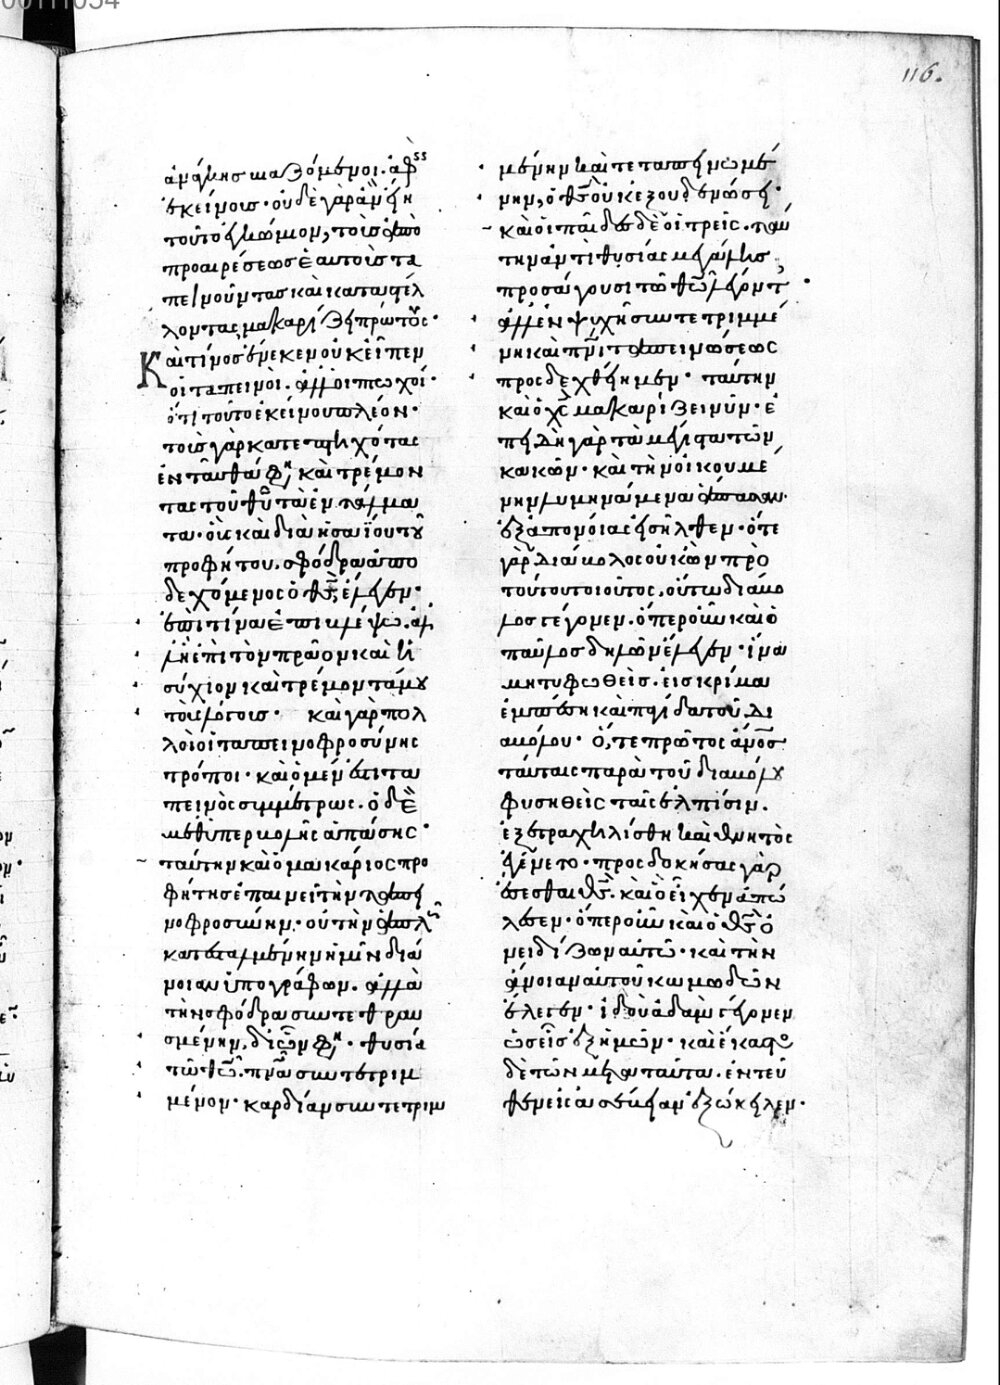 116.
ἀνάγκης μακαριζόμενοι. ἀφ
ἐκείνοις· οὐδὲ γὰρ ἂν εἴη
τοῦτο ἐγκώμιον, τοὺς ἀπὸ
προαιρέσεως ἑαυτοὺς τα
πεινοῦντας καὶ καταστέλ
λοντας μακαρίζει πρώτους·
Καὶ τίνος ἕνεκεν οὐκ εἶπεν
οἱ ταπεινοί. ἀλλ οἱ πτωχοί·
ὅτι τοῦτο ἐκείνου πλέον·
τοὺς γὰρ κατεπτηχότας
ἐνταῦθά φησι, καὶ τρέμον
τας τοῦ θυ τὰ ἐντάλμα
τα· οὓς καὶ διὰ ἡσαΐου τοῦ
προφήτου. σφόδρα ἀπο
δεχόμενος ὁ θς, ἔλεγεν·
ἐπὶ τίνα ἐπιβλέψω. ἀλ
λ ἢ ἐπὶ τὸν πρᾶον καὶ ἡ
σύχιον καὶ τρέμοντά μου
τοὺς λόγους· καὶ γὰρ πολ
λοὶ οἱ ταπεινοφροσύνης
τρόποι· καὶ ὁ μέν ἐστι τα
πεινὸς συμμέτρως. ὁ δὲ
μεθ ὑπερβολῆς ἁπάσης·
ταύτην καὶ ὁ μακάριος προ
φήτης ἐπαινεῖ τὴν ταπει
νοφροσύνην. οὐ τὴν ἁπλῶς
κατεσταλμένην ἡμῖν διά
νοιαν ὑπογράφων. ἀλλὰ
τὴν σφόδρα συντεθραυ
σμένην, δι ὧν φησι· θυσία
τῶ θῶ. πνα συντετριμ
μένον· καρδίαν συντετριμ
μένην καὶ τεταπεινωμέ
νην, ὁ θς οὐκ ἐξουδενώσει·
καὶ οἱ παῖδες δὲ οἱ τρεῖς. ταύ
την ἀντὶ θυσίας μεγάλης
προσάγουσι τῶ θῶ λέγοντες·
ἀλλ ἐν ψυχῆ συντετριμμέ
νη καὶ πνι ταπεινώσεως
προσδεχθείημεν· ταύτην
καὶ ὁ χς μακαρίζει νῦν· ἐ
πειδὴ γὰρ τὰ μέγιστα τῶν
κακῶν· καὶ τὴν οἰκουμέ
νην λυμηνάμενα ἅπασαν.
ἐξ ἀπονοίας εἰσῆλθεν· ὅτε
γὰρ διάβολος οὐκ ὢν πρὸ
τούτου τοιοῦτος, οὕτω διάβο
λος γέγονεν. ὅπερ οὖν καὶ ὁ
παῦλος δηλῶν ἔλεγεν· ἵνα
μὴ τυφωθεὶς. εἰς κρίμα
ἐμπέση καὶ παγίδα τοῦ δι
αβόλου· ὅ, τε πρῶτος ἄνος
ταύταις παρὰ τοῦ διαβόλου
φυσηθεὶς ταῖς ἐλπίσιν.
ἐξετραχηλίσθη καὶ θνητὸς
ἐγένετο· προσδοκήσας γὰρ
ἔσεσθαι θς. καὶ ὃ εἶχεν ἀπώ
λεσεν· ὅπερ οὖν καὶ ὁ θς ὀ
νειδίζων αὐτῶ· καὶ τὴν
ἄνοιαν αὐτοῦ κωμωδῶν
ἔλεγεν· ἰδοὺ ἀδὰμ γέγονεν
ὡς εἷς ἐξ ἡμῶν· καὶ ἕκαστος
δὲ τῶν μετὰ ταῦτα. ἐντεῦ
θεν εἰς ἀσέβειαν ἐξώκειλεν·